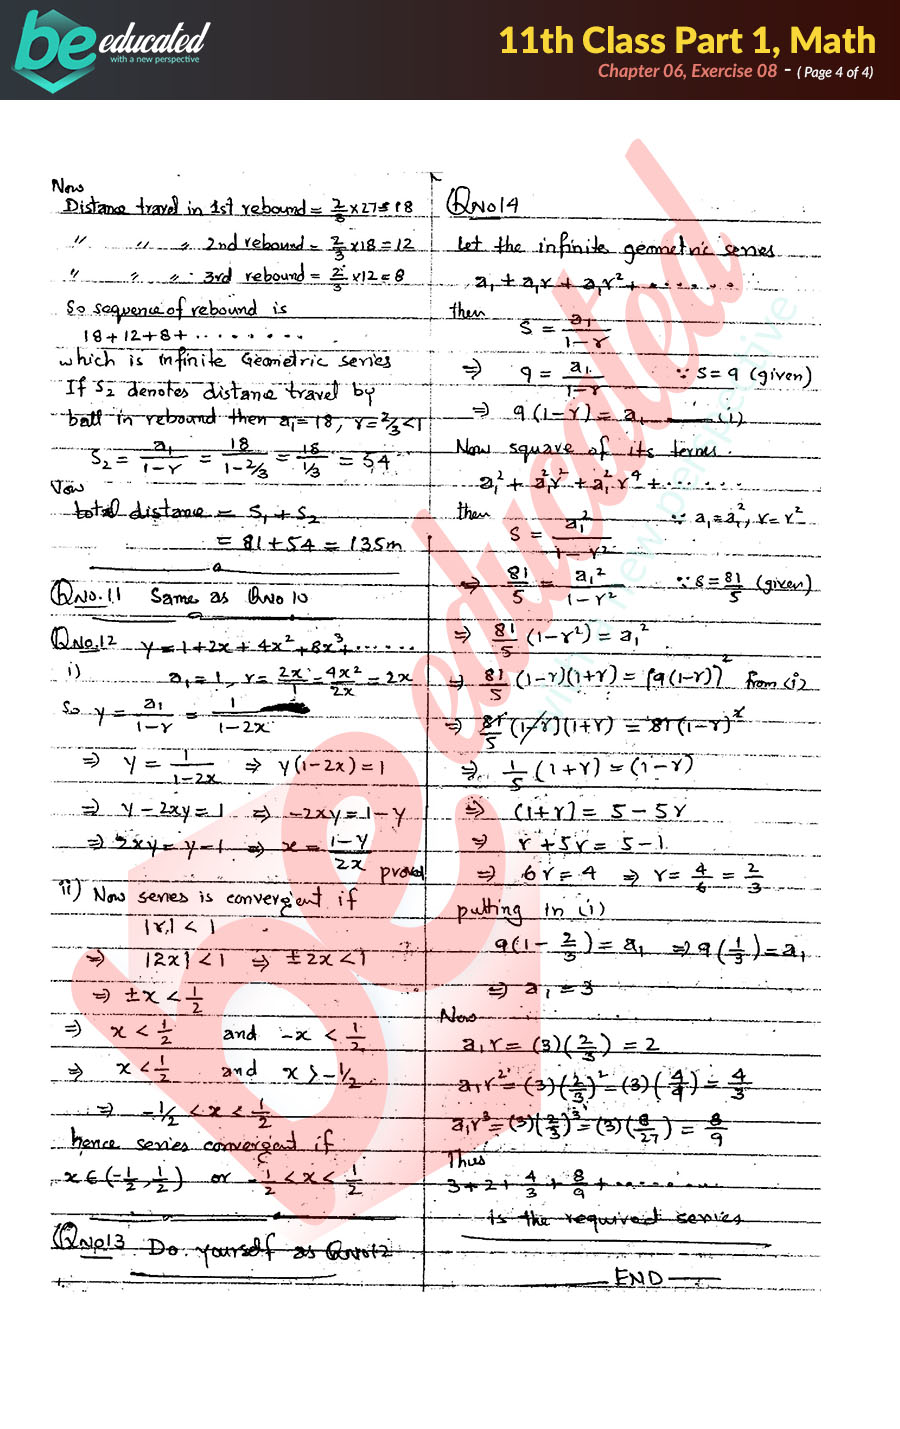 be educated
with a new perspective
11th Class Part 1, Math
Chapter 06, Exercise 08 - ( Page 4 of 4)
Now
Distance travel in 1st rebound = 2/3 × 27 = 18
" " " 2nd rebound = 2/3 × 18 = 12
" " " 3rd rebound = 2/3 × 12 = 8
So sequence of rebound is
18 + 12 + 8 + ........
which is infinite Geometric series
If S₂ denotes distane travel by
ball in rebound then a₁ = 18, r = 2/3 < 1
S₂ = a₁/(1-r) = 18/(1-2/3) = 18/(1/3) = 54
Now
total distance = S₁ + S₂
= 81 + 54 = 135m
QNo.11 Same as QNo 10
QNo.12 y = 1 + 2x + 4x² + 8x³ + ......
i) a₁ = 1, r = 2x/1 = 4x²/2x = 2x
So y = a₁/(1-r) = 1/(1-2x)
⇒ y = 1/(1-2x) ⇒ y(1-2x) = 1
⇒ y - 2xy = 1 ⇒ -2xy = 1-y
⇒ 2xy = y-1 ⇒ x = (1-y)/2x proved
ii) Now series is convergent if
|r| < 1
⇒ |2x| < 1 ⇒ ±2x < 1
⇒ ±x < 1/2
⇒ x < 1/2 and -x < 1/2
⇒ x < 1/2 and x > -1/2
⇒ -1/2 < x < 1/2
hence series convergent if
x ∈ (-1/2, 1/2) or -1/2 < x < 1/2
QNo13 Do yourself as QNo12
QNo14
Let the infinite geometric series
a₁ + a₁r + a₁r² + .......
then
S = a₁/(1-r)
⇒ 9 = a₁/(1-r) ∵ S = 9 (given)
⇒ 9(1-r) = a₁ —— (i)
Now square of its terms.
a₁² + a₁²r² + a₁²r⁴ + ......
then S = a₁²/(1-r²) ∵ a₁ = a₁², r = r²
⇒ 81/5 = a₁²/(1-r²) ∵ S = 81/5 (given)
⇒ 81/5 (1-r²) = a₁²
⇒ 81/5 (1-r)(1+r) = [9(1-r)]² from (i)
⇒ 81/5 (1-r)(1+r) = 81(1-r)²
⇒ 1/5 (1+r) = (1-r)
⇒ (1+r) = 5 - 5r
⇒ r + 5r = 5 - 1
⇒ 6r = 4 ⇒ r = 4/6 = 2/3
putting in (i)
9(1 - 2/3) = a₁ ⇒ 9(1/3) = a₁
⇒ a₁ = 3
Now
a₁r = (3)(2/3) = 2
a₁r² = (3)(2/3)² = (3)(4/9) = 4/3
a₁r³ = (3)(2/3)³ = (3)(8/27) = 8/9
Thus
3 + 2 + 4/3 + 8/9 + ........
is the required series
END
be educated
with a new perspective